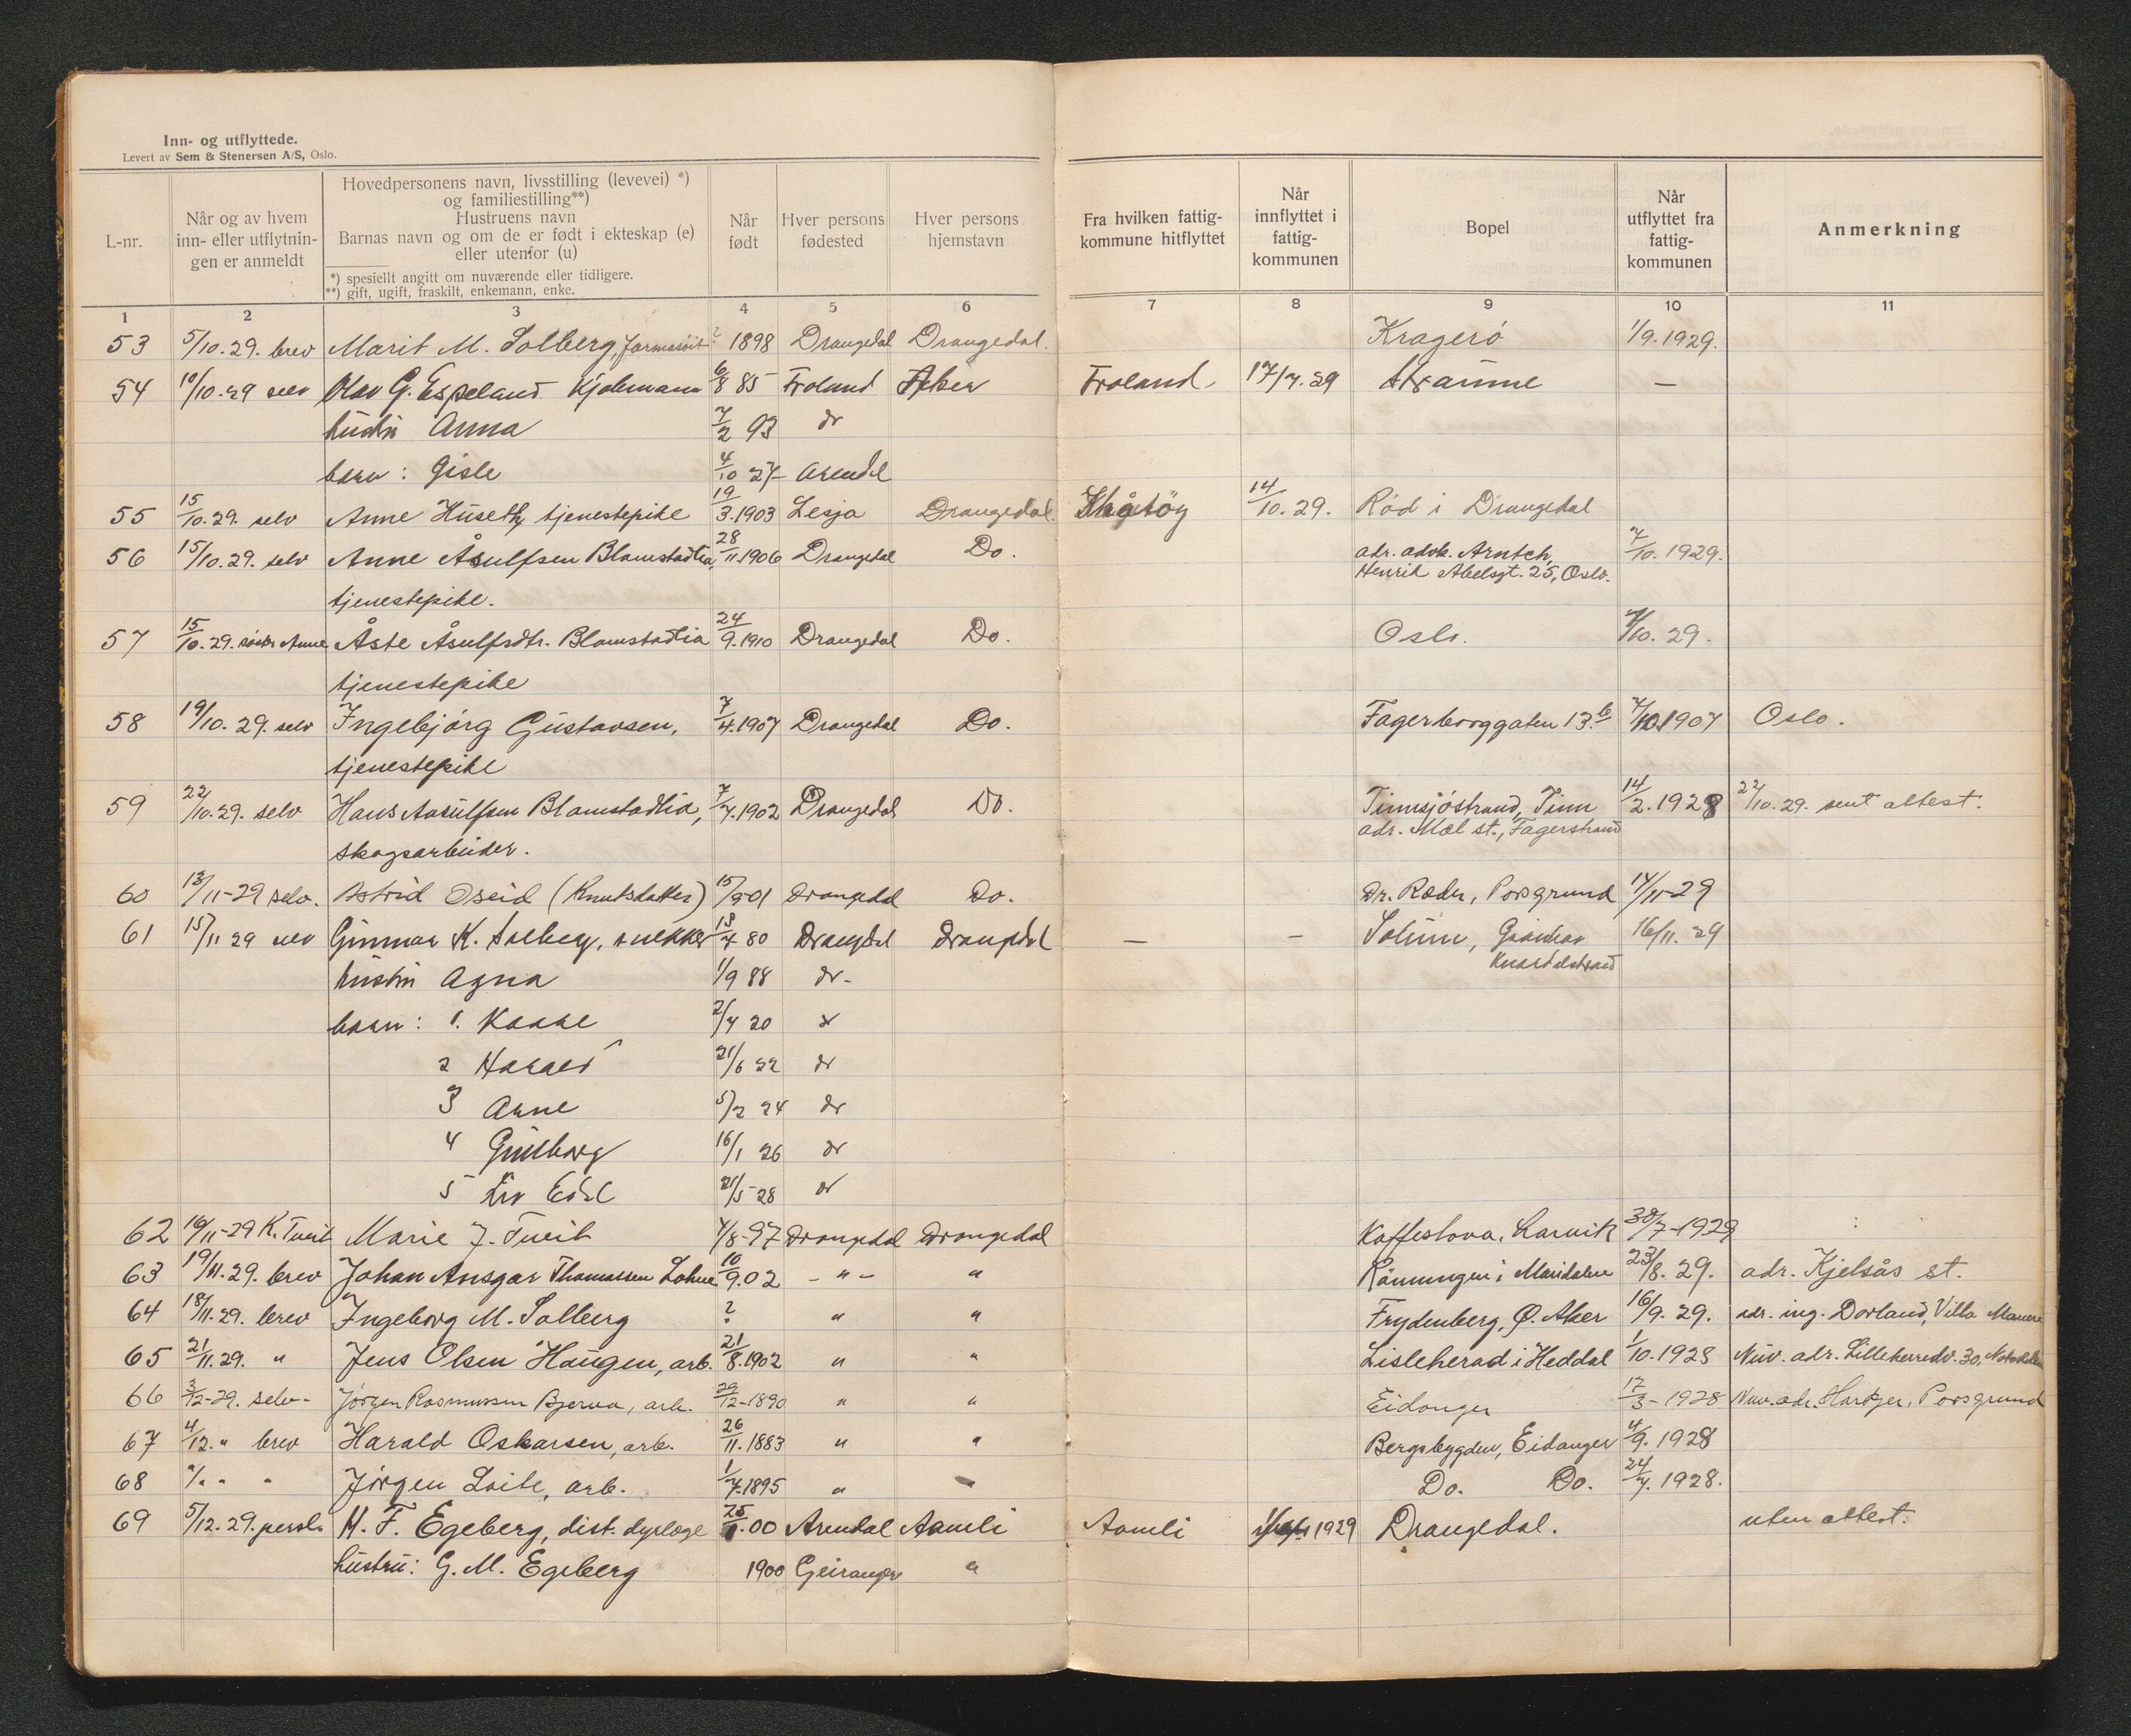 Inn- og utflyttede.
Levert av Sem & Stenersen A/S, Oslo.
L-nr.
Når og av hvem inn- eller utflytnin-gen er anmeldt
Hovedpersonens navn, livsstilling (levevei) *)
og familiestilling**)
Hustruens navn
Barnas navn og om de er født i ekteskap (e)
eller utenfor (u)
*) spesiellt angitt om nuværende eller tidligere.
**) gift, ugift, fraskilt, enkemann, enke.
Når født
Hver persons fødested
Hver persons hjemstavn
Fra hvilken fattig-kommune hitflyttet
Når innflyttet i fattig-kommunen
Bopel
Når utflyttet fra fattig-kommunen
Anmerkning
1 2 3 4 5 6 7 8 9 10 11
53 5/10.29. brev Marit M. Solberg, ? 1898 Drangedal Drangedal. Kragerö 1/9.1929.
54 10/10.29 selv Olav G. Espeland 6/8 85 Froland Froland 17/7.29 Straume —
hustru Anna 7/2 93 do
barn: Gisle 4/10 27 Arendal
55 15/10.29. selv Anne Huseth, tjenestepike 19/3.1903 Lesja Drangedal. Skåtöy 14/10.29. Röd i Drangedal
56 15/10.29. selv Anne Åsulfsen Blomstadlia, 28/11.1906 Drangedal Do. adr. advk. Arntch, 7/10.1929.
Henrik Abelsgt. 25, Oslo.
tjenestepike.
57 15/10.29. Anne Åste Åsulfsdtr. Blomstadlia 24/9.1910 Drangedal Do. Oslo. 7/10.29.
tjenestepike
58 19/10.29. selv Ingebjörg Gustavsen, 7/4.1907 Drangedal Do. Fagerborggaten 13.b 7/10 1907 Oslo.
tjenestepike
59 22/10.29. selv Hans Aasulfsen Blomstadlia, 7/7.1902 Drangedal Do. Tinnsjöstrand, Tinn 14/2.1928 22/10.29. sent attest.
adr. Mæl st., Fagerstrand
skogsarbeider.
60 13/11-29 selv. Astrid Oseid (Knutsdatter) 15/9-01 Drangedal Do. Dr. Roder, Porsgrund 14/11-29
61 15/11 29 selv Gunnar K. Solberg, snekker 18/4 80 Drangedal Drangedal — — Solum, 16/11.29
hustru Agna 1/9 88 do.
barn: 1. Kaare 2/4 20 do
2 Harald 21/6 22 do
3 Arne 5/2 24 do
4 Gudborg 16/1 26 do
5 Liv Edel 21/5 28 do
62 16/11-29 K. Tveit Marie J. Tveit 4/8-97 Drangedal Drangedal Kaffestova, Larvik 30/7-1929
63 19/11.29. brev Johan Ansgar Thomassen Lohne 10/9.02 -"- " Rönningen i Maridalen 23/8.29. adr. Kjelsås st.
64 18/11.29. brev Ingeborg M. Solberg ? " " Frydenberg, Ö. Aker 16/9.29. adr. ing. Dorland, Villa
65 21/11.29. " Jens Olsen Haugen, arb. 21/8.1902 " " Lisleherad i Heddal 1/10.1928 Nuv. adr. Lilleherredv. 30, Notodden
66 3/12-29. selv- Jörgen Rasmussen Bjerva, arb. 29/12-1890 " " Eidanger 17/3-1928 Nuv. adr. Porsgrund
67 4/12. " brev Harald Oskarsen, arb. 26/11.1883 " " Bergsbygden, Eidanger 4/9.1928
68 "/" " " Jörgen Loite, arb. 1/7.1895 " Do. Do. 24/7.1928.
69 5/12.29. persl. H. F. Egeberg, dist. dyrlæge 25/1.00 Arendal Aamli Aamli 1929 Drangedal. uten attest.
hustru: G. M. Egeberg 1900 Geiranger "